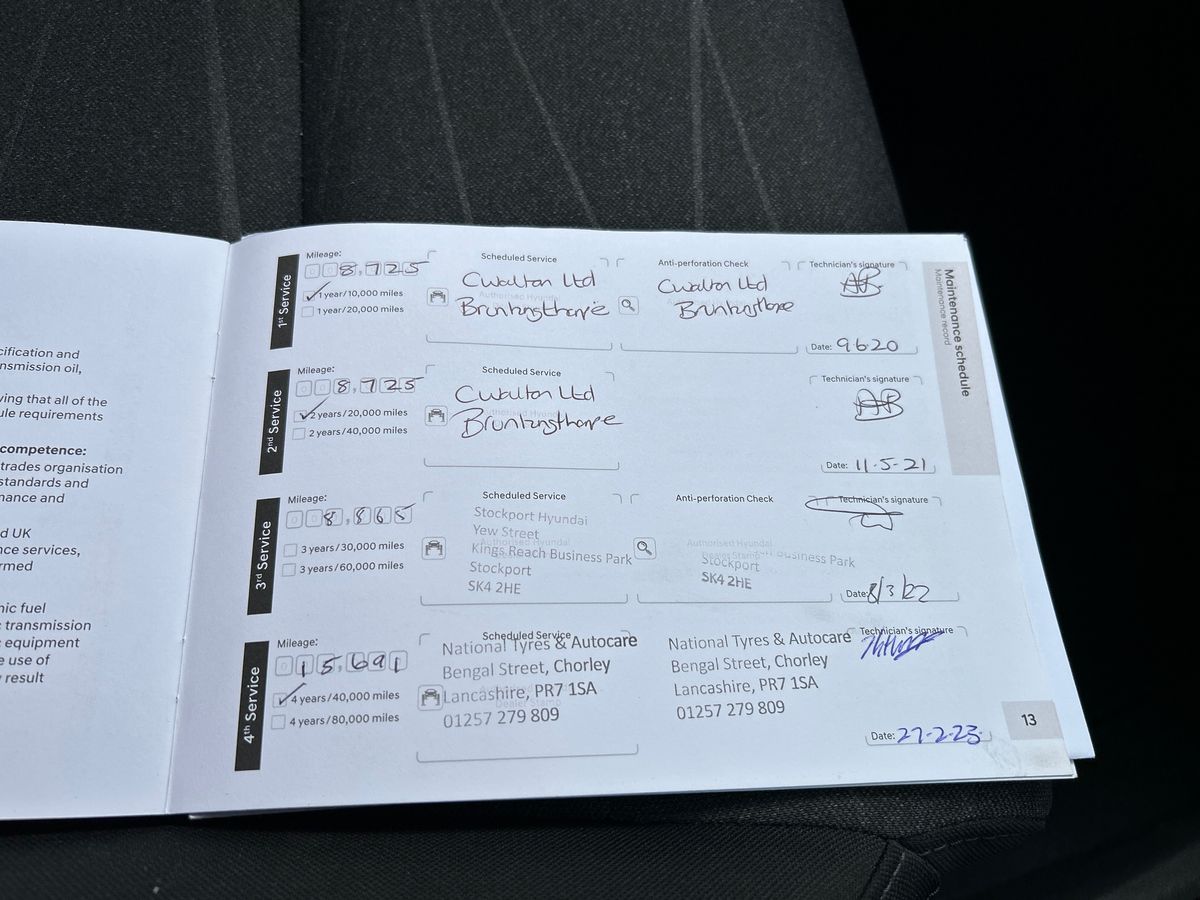 cification and
nsmission oil,
ving that all of the
ule requirements
competence:
trades organisation
standards and
nance and
d UK
nce services,
rmed
nic fuel
c transmission
c equipment
e use of
y result
1st Service
Mileage:
008,725
1 year/10,000 miles
1 year/20,000 miles
Scheduled Service
Cwalton Ltd
Bruntingthorpe
Anti-perforation Check
Cwalton Ltd
Bruntingthorpe
Technician's signature
Date: 9.6.20
2nd Service
Mileage:
008,725
2 years/20,000 miles
2 years/40,000 miles
Scheduled Service
Cwalton Ltd
Bruntingthorpe
Technician's signature
Date: 11.5.21
3rd Service
Mileage:
008,865
3 years/30,000 miles
3 years/60,000 miles
Scheduled Service
Stockport Hyundai
Yew Street
Kings Reach Business Park
Stockport
SK4 2HE
Anti-perforation Check
Business Park
Stockport
SK4 2HE
Technician's signature
Date: 8/3/22
4th Service
Mileage:
015,691
4 years/40,000 miles
4 years/80,000 miles
Scheduled Service
National Tyres & Autocare
Bengal Street, Chorley
Lancashire, PR7 1SA
01257 279 809
National Tyres & Autocare
Bengal Street, Chorley
Lancashire, PR7 1SA
01257 279 809
Technician's signature
Date: 27-2-23
Maintenance schedule
Maintenance record
13